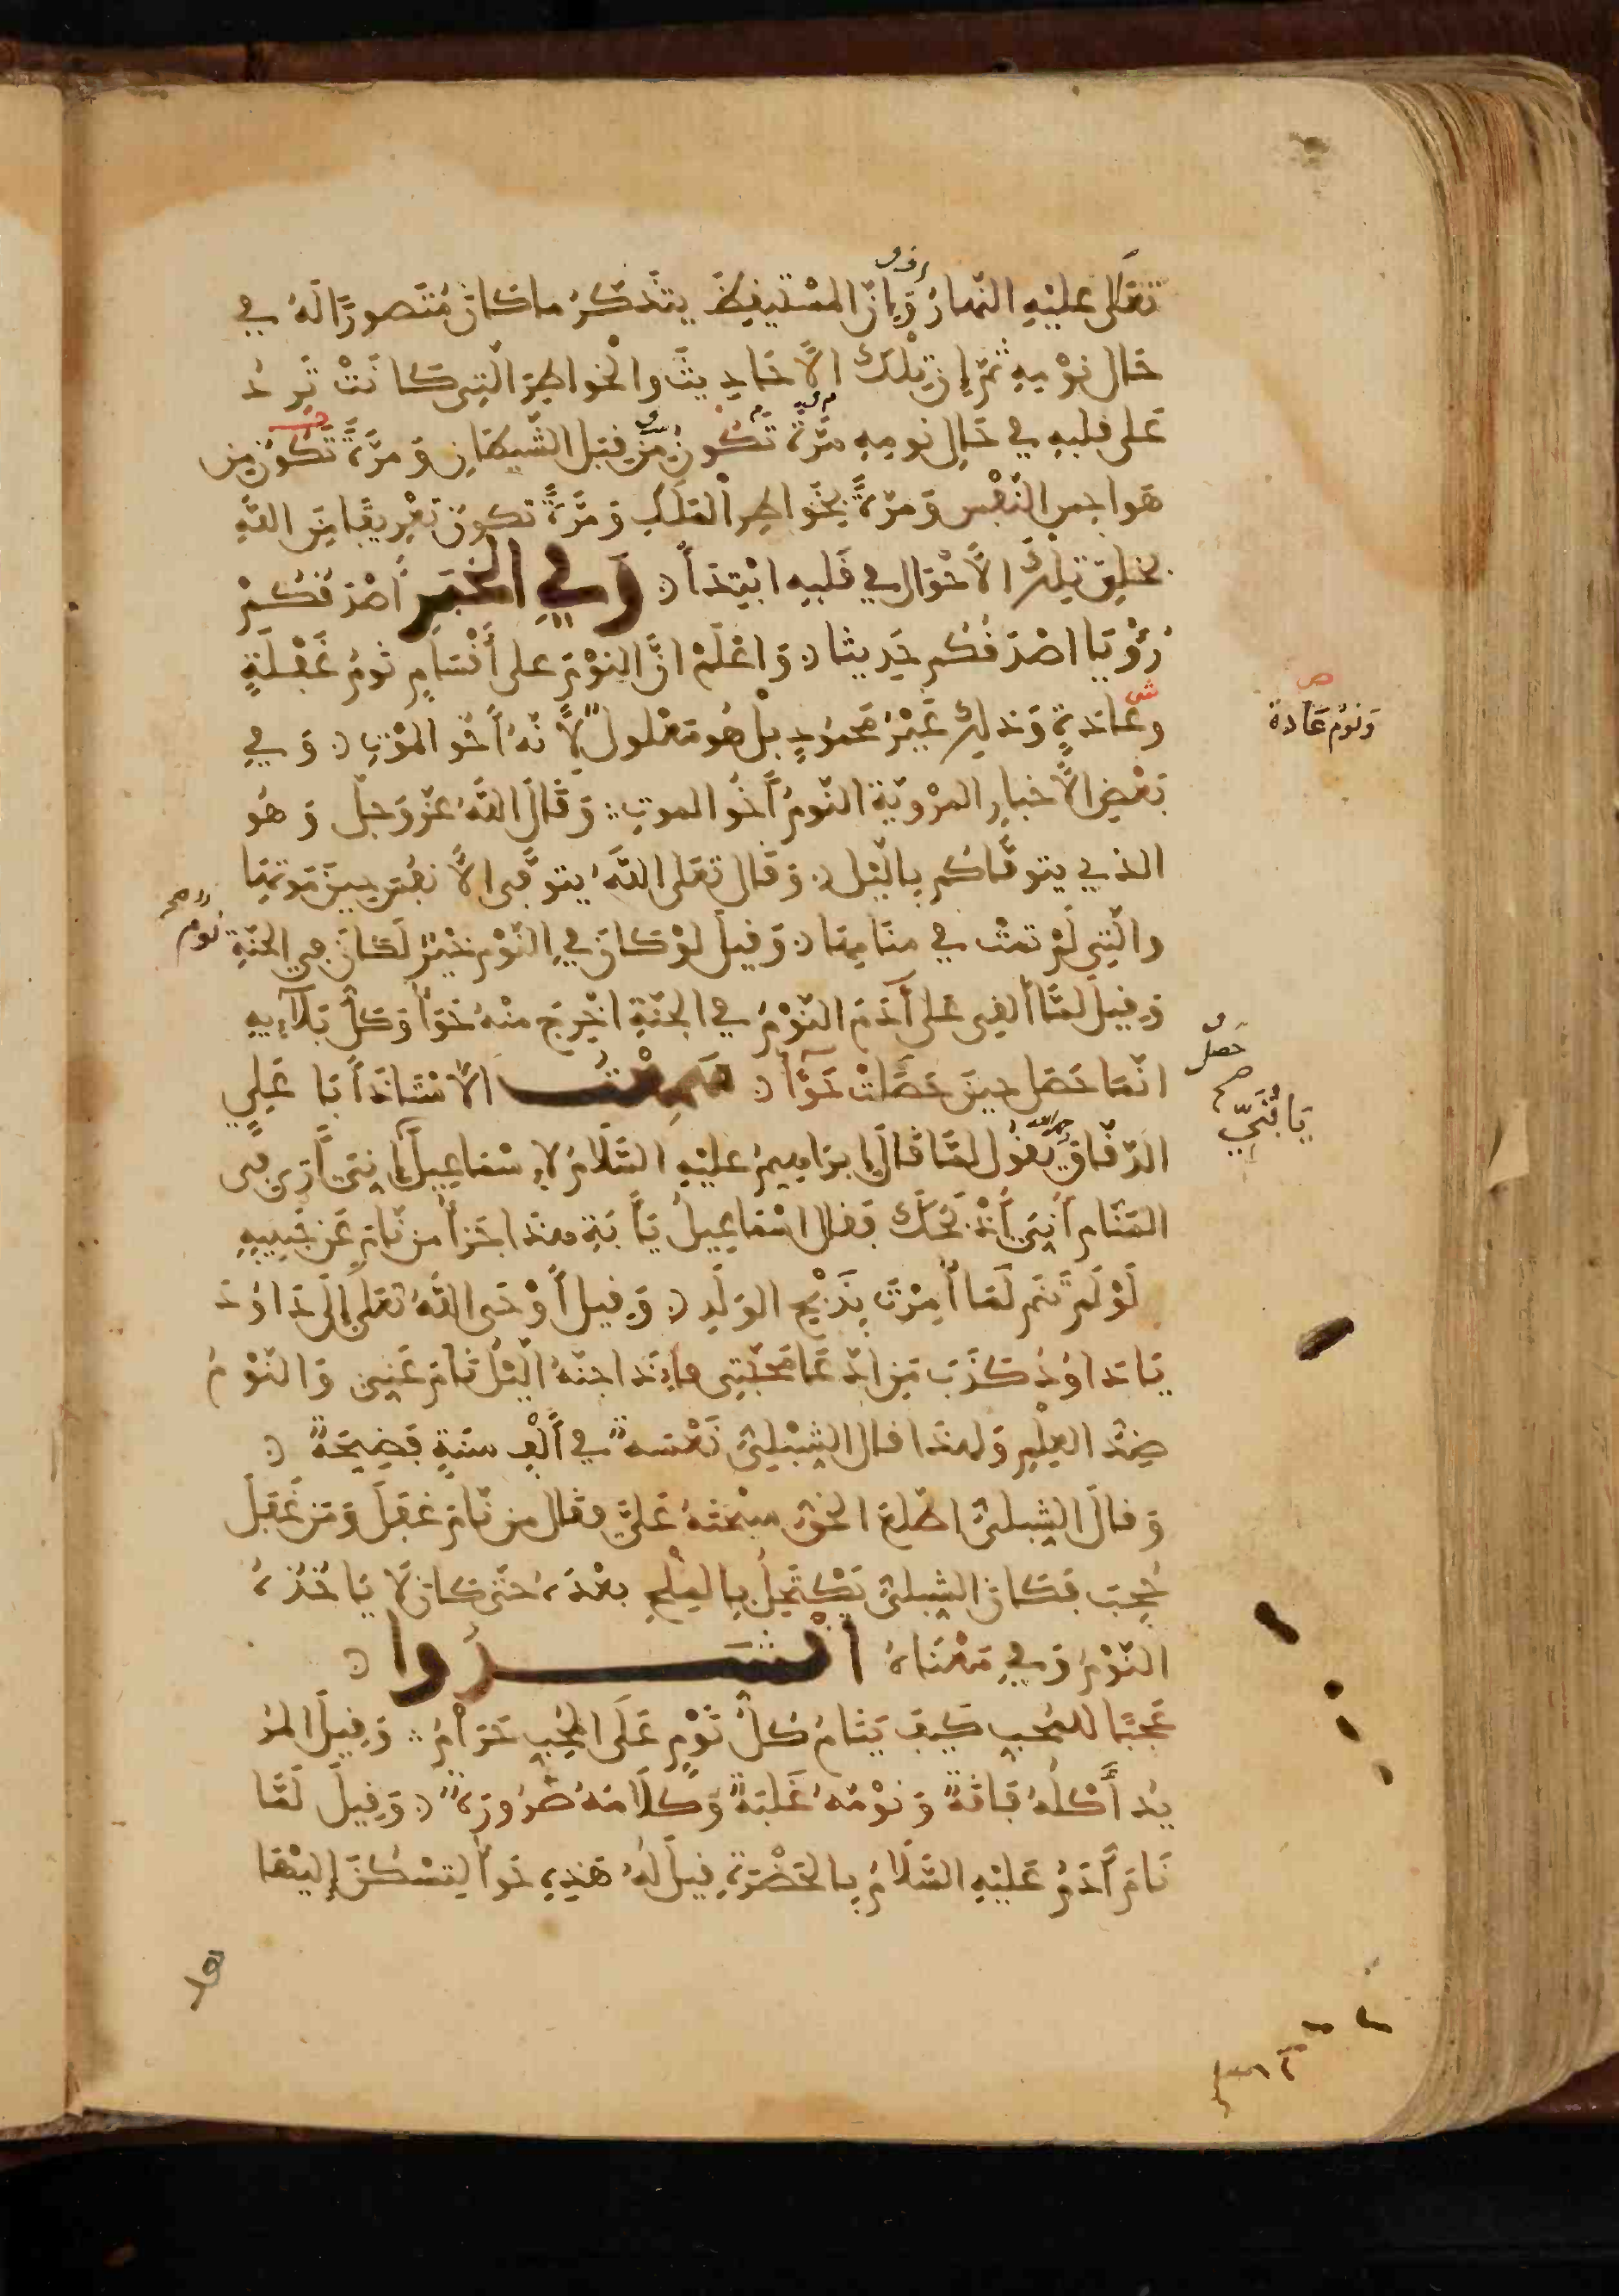 تعلى عليه النهار وإن المستيقظ يتذكر ما كان متصورا له في
حال نومه ثم إن تلك الأحاديث والخواطر التي كانت ترد
على قلبه في حال نومه مرة تكون من قبل الشيطان ومرة تكون من
هواجس النفس ومرة بخواطر الملك ومرة تكون تعريفا من الله
بخلق تلك الأحوال في قلبه ابتداء وفي الخبر أصدقكم
رؤيا أصدقكم حديثا واعلم أن النوم على أقسام نوم غفلة
وعادة وذلك غير محمود بل هو معلول لأنه أخو الموت وفي
ونوم عادة
بعض الأخبار المروية النوم أخو الموت وقال الله عز وجل وهو
الذي يتوفاكم باليل وقال تعلى الله يتوفى الأنفس حين موتها
والتي لم تمت في منامها وقيل لو كان في النوم خير لكان في الجنة
نوم
وقيل لما ألقي على آدم النوم في الجنة أخرج منه حوآ وكل بلآيه
انما حصل حين حصلت حوآ سمعت الأستاذ أبا علي
حصل
الدقاق يقول لما قال إبراهيم عليه السلام لإسماعيل إني أرى في
يا بني
المنام أني أذبحك فقال اسماعيل يا أبة هذا جزأ من نام عن حبيبه
لو لم تنم لما أمرت بذبح الولد وقيل أوحى الله تعلى إلى داود
يا داود كذب من ادعا محبتي فإذا جنه اليل نام عني والنوم
ضد العلم ولهذا قال الشبلي نعسة في ألف سنة فضيحة
وقال الشبلي اطلع الحق سبحنه علي فقال من نام غفل ومن غفل
حجب فكان الشبلي يكتحل بالملح بعده حتى كان لا ياخذه
النوم وفي معناه انشدوا
عجبا للمحب كيف ينام كل نوم على المحب حرام وقيل المر
يد أكله فاقة ونومه غلبة وكلامه ضرورة وقيل لما
نام آدم عليه السلام بالحضرة قيل له هذه حوآ لتسكن إليها